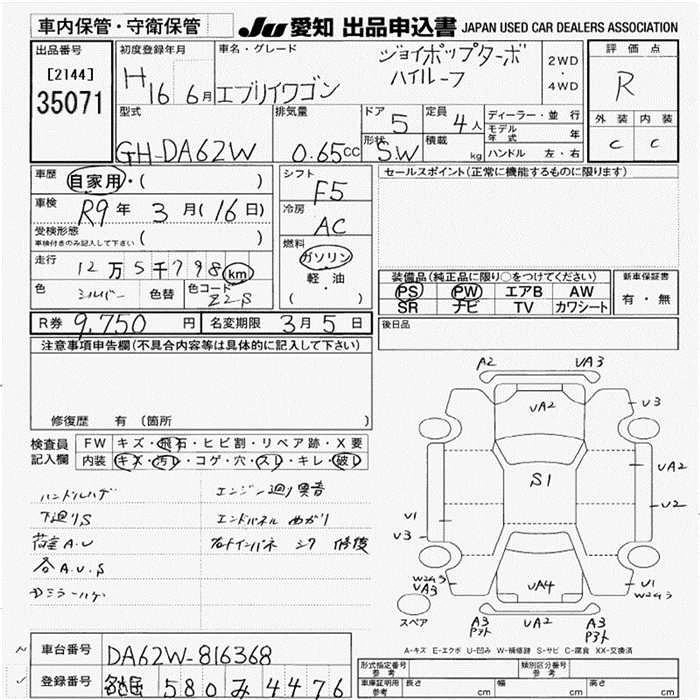 車内保管・守衛保管
JU 愛知 出品申込書 JAPAN USED CAR DEALERS ASSOCIATION
出品番号
[2144]
35071
初度登録年月
H 16 6月
車名・グレード
エブリイワゴン
ジョイポップターボ
ハイルーフ
2WD
・
4WD
評価点
R
外装 内装
C C
型式
GH-DA62W
排気量
0.65cc
ドア
5
定員
4人
形状
S.W
積載
kg
ディーラー・並行
モデル年式 年
ハンドル 左・右
車歴
自家用・( )
車検
R9年 3月(16日)
受検形態
車検付きのみ記入して下さい ( )
走行
12万5千798km
色
シルバー
色替
色コード
Z2S
シフト
F5
冷房
AC
燃料
ガソリン
軽油
( ・ )
セールスポイント(正常に機能するものに限ります)
装備品(純正品に限り○をつけてください)
PS PW エアB AW
SR ナビ TV カワシート
新車保証書
有・無
後日品
R券 9,750円
名変期限 3月5日
注意事項申告欄(不具合内容等は具体的に記入して下さい)
修復歴 有(箇所 )
検査員
記入欄
FW キズ・飛石・ヒビ割・リペア跡・X要
内装 キズ・汚レ・コゲ・穴・スレ・キレ・破レ
ハンドルハゲ
下廻りS
荷室A.U
各A.U.S
エンジン廻り異音
エンドパネル めがり
右トインパネ シワ 修復
A2 UA3
UA2
U3
S1
UA2
U2
U1
U3
W2a3
UA3
UA4
U1
W2a3
スペア
A3
UA2
A3
A-キズ E-エクボ U-凹み W-補修跡 S-サビ C-腐食 XX-交換済
車台番号 DA62W-816368
登録番号 名古屋 580 み 4476
形式指定番号
参考
類別区分番号
参考
車庫証明用
参考
長さ cm 幅 cm 高さ cm